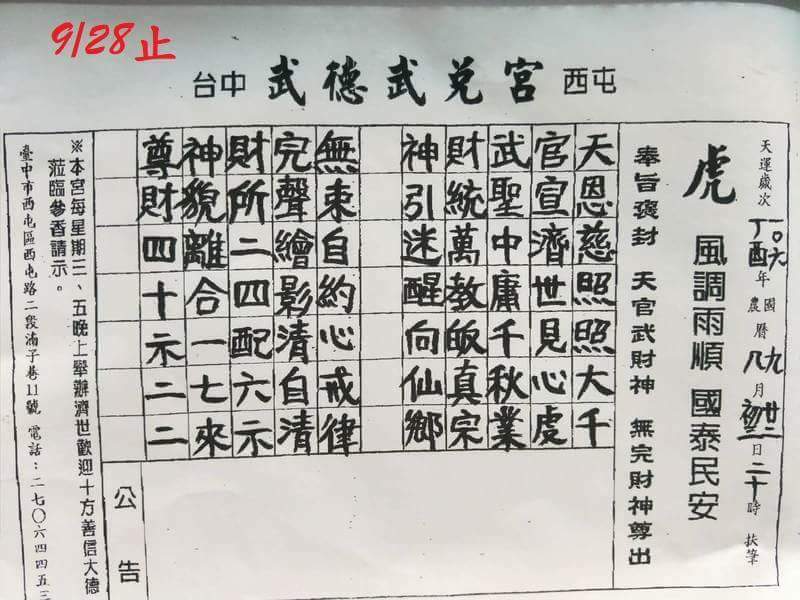 9/28止
台中 武德武兌宮 西屯
天運歲次 一〇六 丁酉 年 國農曆 九八 月 廿二初三 日 二十 時 扶筆
虎 風調雨順 國泰民安
奉旨褒封 天官武財神 無完財神尊出
天恩慈照照大千
官宣濟世見心虔
武聖中庸千秋業
財統萬教皈真宗
神引迷醒向仙鄉
無束自約心戒律
完聲繪影清自清
財所二四配六示
神貌離合一七來
尊財四十示二二
公告
※本宮每星期二、五晚上舉辦濟世歡迎十方善信大德
蒞臨參香請示。
臺中市西屯區西屯路二段湳子巷11號 電話：二七〇六四四五三